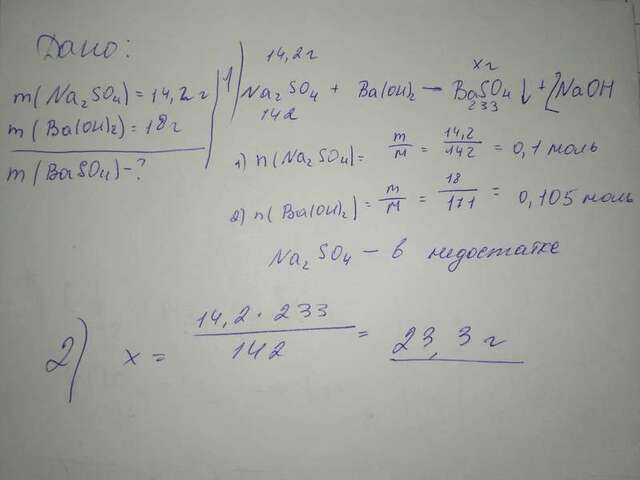 Дано:
m(Na₂SO₄) = 14,2 г
m(Ba(OH)₂) = 18 г
m(BaSO₄) - ?
14,2 г
x г
1) Na₂SO₄ + Ba(OH)₂ — BaSO₄ ↓ + 2NaOH
142
233
1) n(Na₂SO₄) = m/M = 14,2/142 = 0,1 моль
2) n(Ba(OH)₂) = m/M = 18/171 = 0,105 моль
Na₂SO₄ — в недостатке
2) x = 14,2 · 233/142 = 23,3 г